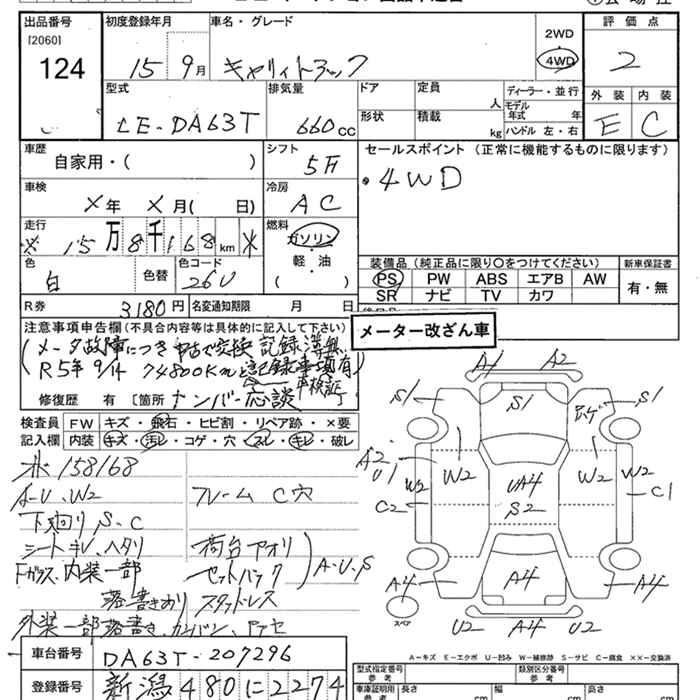 出品番号 初度登録年月 車名・グレード 評価点
[2060]
124 15 9月 キャリィトラック 2WD 4WD 2
型式 排気量 ドア 定員 人 ディーラー・並行 外装 内装
LE-DA63T 660cc 形状 積載 kg モデル年式 年 ハンドル 左・右 E C
車歴 自家用・( ) シフト 5F セールスポイント (正常に機能するものに限ります)
・4WD
車検 ×年 ×月( 日) 冷房 AC
走行 ※ 15万8千168km ※ 燃料 ガソリン・軽・油( )
色 白 色替 色コード 26U 装備品 (純正品に限り○をつけてください) 新車保証書
PS PW ABS エアB AW 有・無
SR ナビ TV カワ
R券 3180円 名変通知期限 月 日
注意事項申告欄(不具合内容等は具体的に記入して下さい) メーター改ざん車
(メータ故障につき中古で交換 記録簿無
R5年9/14 74800Kmと記録事項有)
車検証
修復歴 有 〔箇所 ナンバー応談
検査員記入欄 FW キズ・飛石・ヒビ割・リペア跡・×要
内装 キズ・汚レ・コゲ・穴・スレ・キレ・破レ
※158168
A-U、W2 フレーム C穴
下廻りS、C
シートキレ、ヘタリ 荷台アオリ
Fガラス、内装一部 セットバック A・U・S
落書きあり スタッドレス
外装一部落書き、カンバン
車台番号 DA63T-207296
登録番号 新潟480に2274
A1 A2
S1 S1
A2 U1 W2 W2 UA4 W2 W2
C2 S2 C1
A4 A4 A4
スペア U2 A4 U2
A-キズ E-エクボ U-凹み W-補修跡 S-サビ C-腐食 ××-交換済
型式指定番号 類別区分番号
参考
車庫証明用 長さ cm 幅 cm 高さ cm
参考